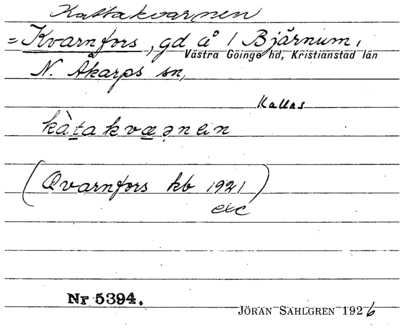 Kattakvarnen
= Kvarnfors, gd å 1 Bjärnum,
Västra Göinge hd, Kristianstad län
N. Åkarps sn,
Kallas
kàtakvæņen
(Qvarnfors kb 1921)
etc
Nr 5394.
JÖRAN SAHLGREN 1926